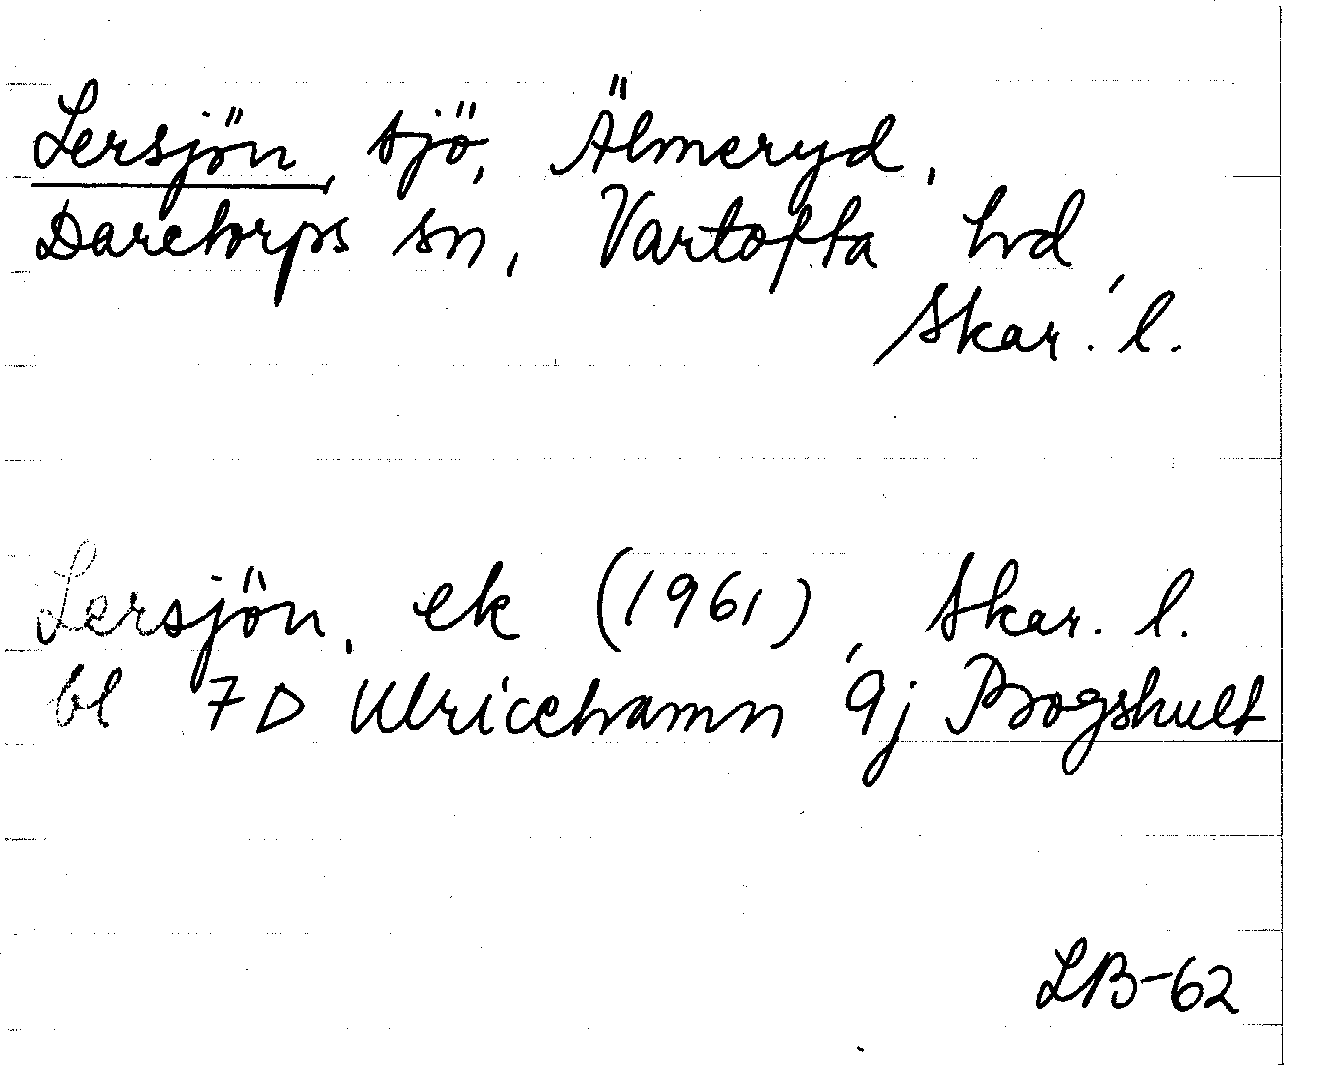 Lersjön, sjö, Älmeryd,
Daretorps sn, Vartofta hd,
Skar. l.
Lersjön, ek (1961), Skar. l.
bl 7D Ulricehamn 9j Brogshult
LB-62